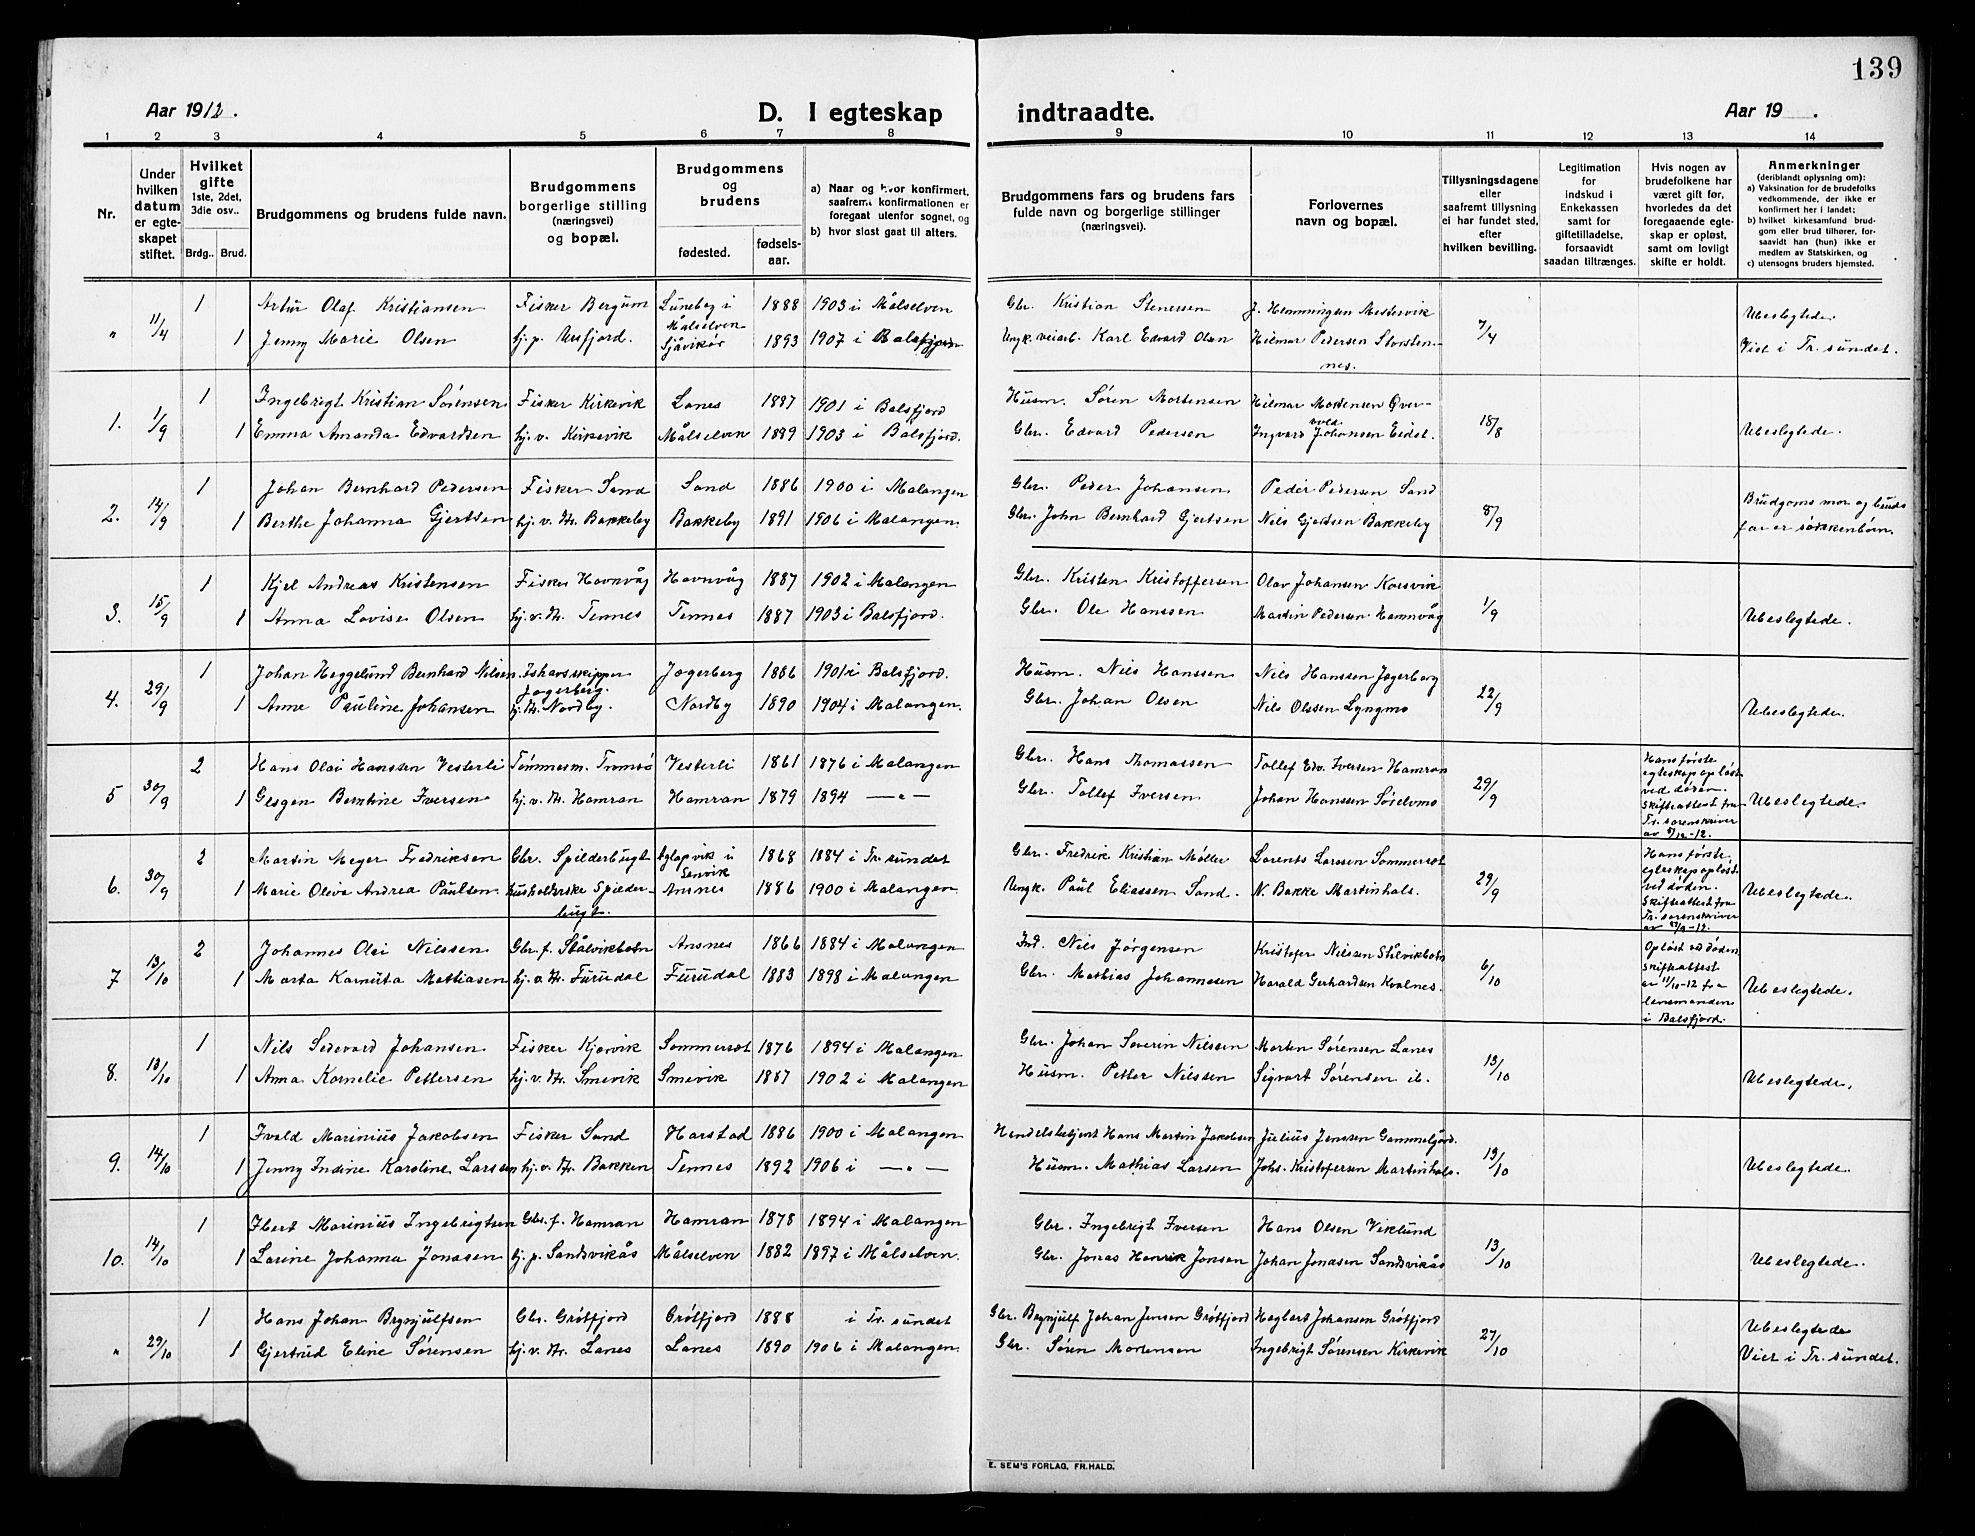 139
Aar 1912.
D. I egteskap
indtraadte.
Aar 19 .
1 2 3 4 5 6 7 8 9 10 11 12 13 14
Nr.
Under hvilken datum er egteskapet stiftet.
Hvilket gifte 1ste, 2det, 3die osv..
Brdg.. Brud.
Brudgommens og brudens fulde navn.
Brudgommens borgerlige stilling (næringsvei) og bopæl.
Brudgommens og brudens
fødested.
fødsels-aar.
a) Naar og hvor konfirmert, saafremt konfirmationen er foregaat utenfor sognet, og
b) hvor sidst gaat til alters.
Brudgommens fars og brudens fars fulde navn og borgerlige stillinger (næringsvei).
Forlovernes navn og bopæl.
Tillysningsdagene eller saafremt tillysning ei har fundet sted, efter hvilken bevilling.
Legitimation for indskud i Enkekassen samt for giftetilladelse, forsaavidt saadan tiltrænges.
Hvis nogen av brudefolkene har været gift før, hvorledes da det foregaaende egteskap er opløst, samt om lovligt skifte er holdt.
Anmerkninger (deriblandt oplysning om):
a) Vaksination for de brudefolks vedkommende, der ikke er konfirmert her i landet;
b) hvilket kirkesamfund brudgom eller brud tilhører, forsaavidt han (hun) ikke er medlem av Statskirken, og
c) utensogns bruders hjemsted.
" 11/4 1 Artur Olaf Kristiansen Fisker Bergum Luneberg i Målselven 1888 1903 i Målselven Gbr. Kristian Stenersen J. Henningsen Mestervik 7/4 Ubeslegtede.
1 Jenny Marie Olsen hj. p. Aasfjord. Sjåvikør 1893 1907 i Balsfjorden Ungk. veiarb. Karl Edvard Olsen Hilmar Pedersen Storstennes. Viet i Tr. sundet.
1. 1/9 1 Ingebrigt Kristian Sørensen Fisker Kirkevik Lanes 1887 1901 i Balsfjord Husm. Søren Mortensen Hilmar Mortensen Øvervold 18/8
1 Emma Amanda Edvardsen hj. v. Kirkevik Målselven 1889 1903 i Balsfjord. Gbr. Edvard Pedersen Ingvard Johansen Eidet. Ubeslegtede.
2. 14/9 1 Johan Bernhard Pedersen Fisker Sand Sand 1886 1900 i Malangen Gbr. Peder Johansen Peder Pedersen Sand 8/9 Brudgoms mor og bruds
1 Berthe Johanna Gjertsen hj. v. Fr. Bakkeby Bakkeby 1891 1906 i Malangen. Gbr. John Bernhard Gjertsen Nils Gjertsen Bakkeby far er søskkenbørn.
3. 15/9 1 Kjel Andreas Kristensen Fisker Havnvåg Havnvåg 1887 1902 i Malangen Gbr. Kristen Kristoffersen Olav Johansen Korsvik 1/9
1 Anna Lovise Olsen hj. v. Fr. Tennes Tennes 1887 1903 i Balsfjord. Gbr. Ole Hanssen Martin Pedersen Hamnvåg Ubeslegtede.
4. 29/9 1 Johan Heggelund Bernhard Nilsen Ishavsskipper Jogerberg. Jogerberg 1886 1901 i Balsfjord. Husm. Nils Hanssen Nils Hanssen Jogerberg 22/9
1 Anne Pauline Johansen hj. Fr. Nordby. Nordby 1890 1904 i Malangen. Gbr. Johan Olsen Nils Olssen Lyngmo Ubeslegtede.
5 30/9 2 Hans Olai Hanssen Vesterli Tømmerm. Tromsø Vesterli 1861 1876 i Malangen Gbr. Hans Thomassen Tollef Edv. Iversen Hamran 29/9 Hans første egteskap opløst ved døden. Skifteattest fra Tr. sorenskriver av 9/12-12.
1 Gesgen Berntine Iversen hj. v. Fr. Hamran Hamran 1879 1894 — " — Gbr. Tollef Iversen Johan Hanssen Sørelvmo Ubeslegtede.
6. 30/9 2 Martin Meyer Fredriksen Gbr. Spilderbugt Eglapvik i Senvik 1868 1884 i Tr. sundet Gbr. Fredrik Kristian Møller Lorents Larssen Sommersæt 29/9 Hans første egteskap opløst ved døden. Skifteattest fra Tr. sorenskriver
1 Marie Oliva Andrea Paulsen. husholderske Spilderbugt. Ansnes 1886 1900 i Malangen. Ungk. Paul Eliassen Sand. N. Bakke Martinhals. Ubeslegtede.
7 13/10 2 Johannes Olai Nilssen Gbr. f. Stålvikbotn Ansnes 1866 1884 i Malangen Ind. Nils Jørgensen Kristofer Nilssen Stålvikbotn 6/10 Opløst ved døden. Skifteattest av 11/10-12 fra lensmanden i Balsfjord.
1 Marta Karnuta Mathiasen hj. v. Fr. Furudal Furudal 1883 1898 i Malangen Gbr. Mathias Johannesen Harald Gerhardsen Kvalnes. Ubeslegtede.
8. 13/10 1 Nils Sedevard Johansen Fisker Kjørvik Sommersæt 1876 1894 i Malangen Gbr. Johan Severin Nilssen Morten Sørensen Lanes 13/10
1 Anna Kornelie Pettersen hj. v. Fr. Småvik Småvik 1887 1902 i Malangen Husm. Petter Nilssen Sigvart Sørensen ib. Ubeslegtede.
9. 14/10 1 Ivald Marinius Jakobsen Fisker Sand Harstad 1886 1900 i Malangen Handelsbetjent Hans Martin Jakobsen Julius Jenssen Gammelgård. 13/10
1 Jenny Indine Karoline Larssen hj. v. Fr. Bakken Tennes 1892 1906 i — " — Husm. Mathias Larsen Johs. Kristofersen Martinhals. Ubeslegtede.
10. 14/10 1 Ibert Marinius Ingebrigtsen Gbr. f. Hamran Hamran 1878 1894 i Malangen Gbr. Ingebrigt Iversen Hans Olsen Viklund 13/10
1 Larine Johanna Jonasen hj. p. Sandsvikås Målselven 1882 1897 i Målselven. Gbr. Jonas Henrik Jonsen Johan Jonasen Sandsvikås Ubeslegtede.
" 29/10 1 Hans Johan Brynjulfsen Gbr. Grötfjord Grötfjord 1888 i Tr. sundet Gbr. Brynjulf Johan Jensen Grötfjord Hagbert Johansen Grötfjord 27/10 Ubeslegtede
1 Gjertrud Eline Sørensen hj. v. Fr. Lanes Lanes 1890 1906 i Malangen. Gbr. Søren Mortensen Ingebrigt Sørensen Kirkevik Viet i Tr. sundet.
E. SEM'S FORLAG, FR.HALD.